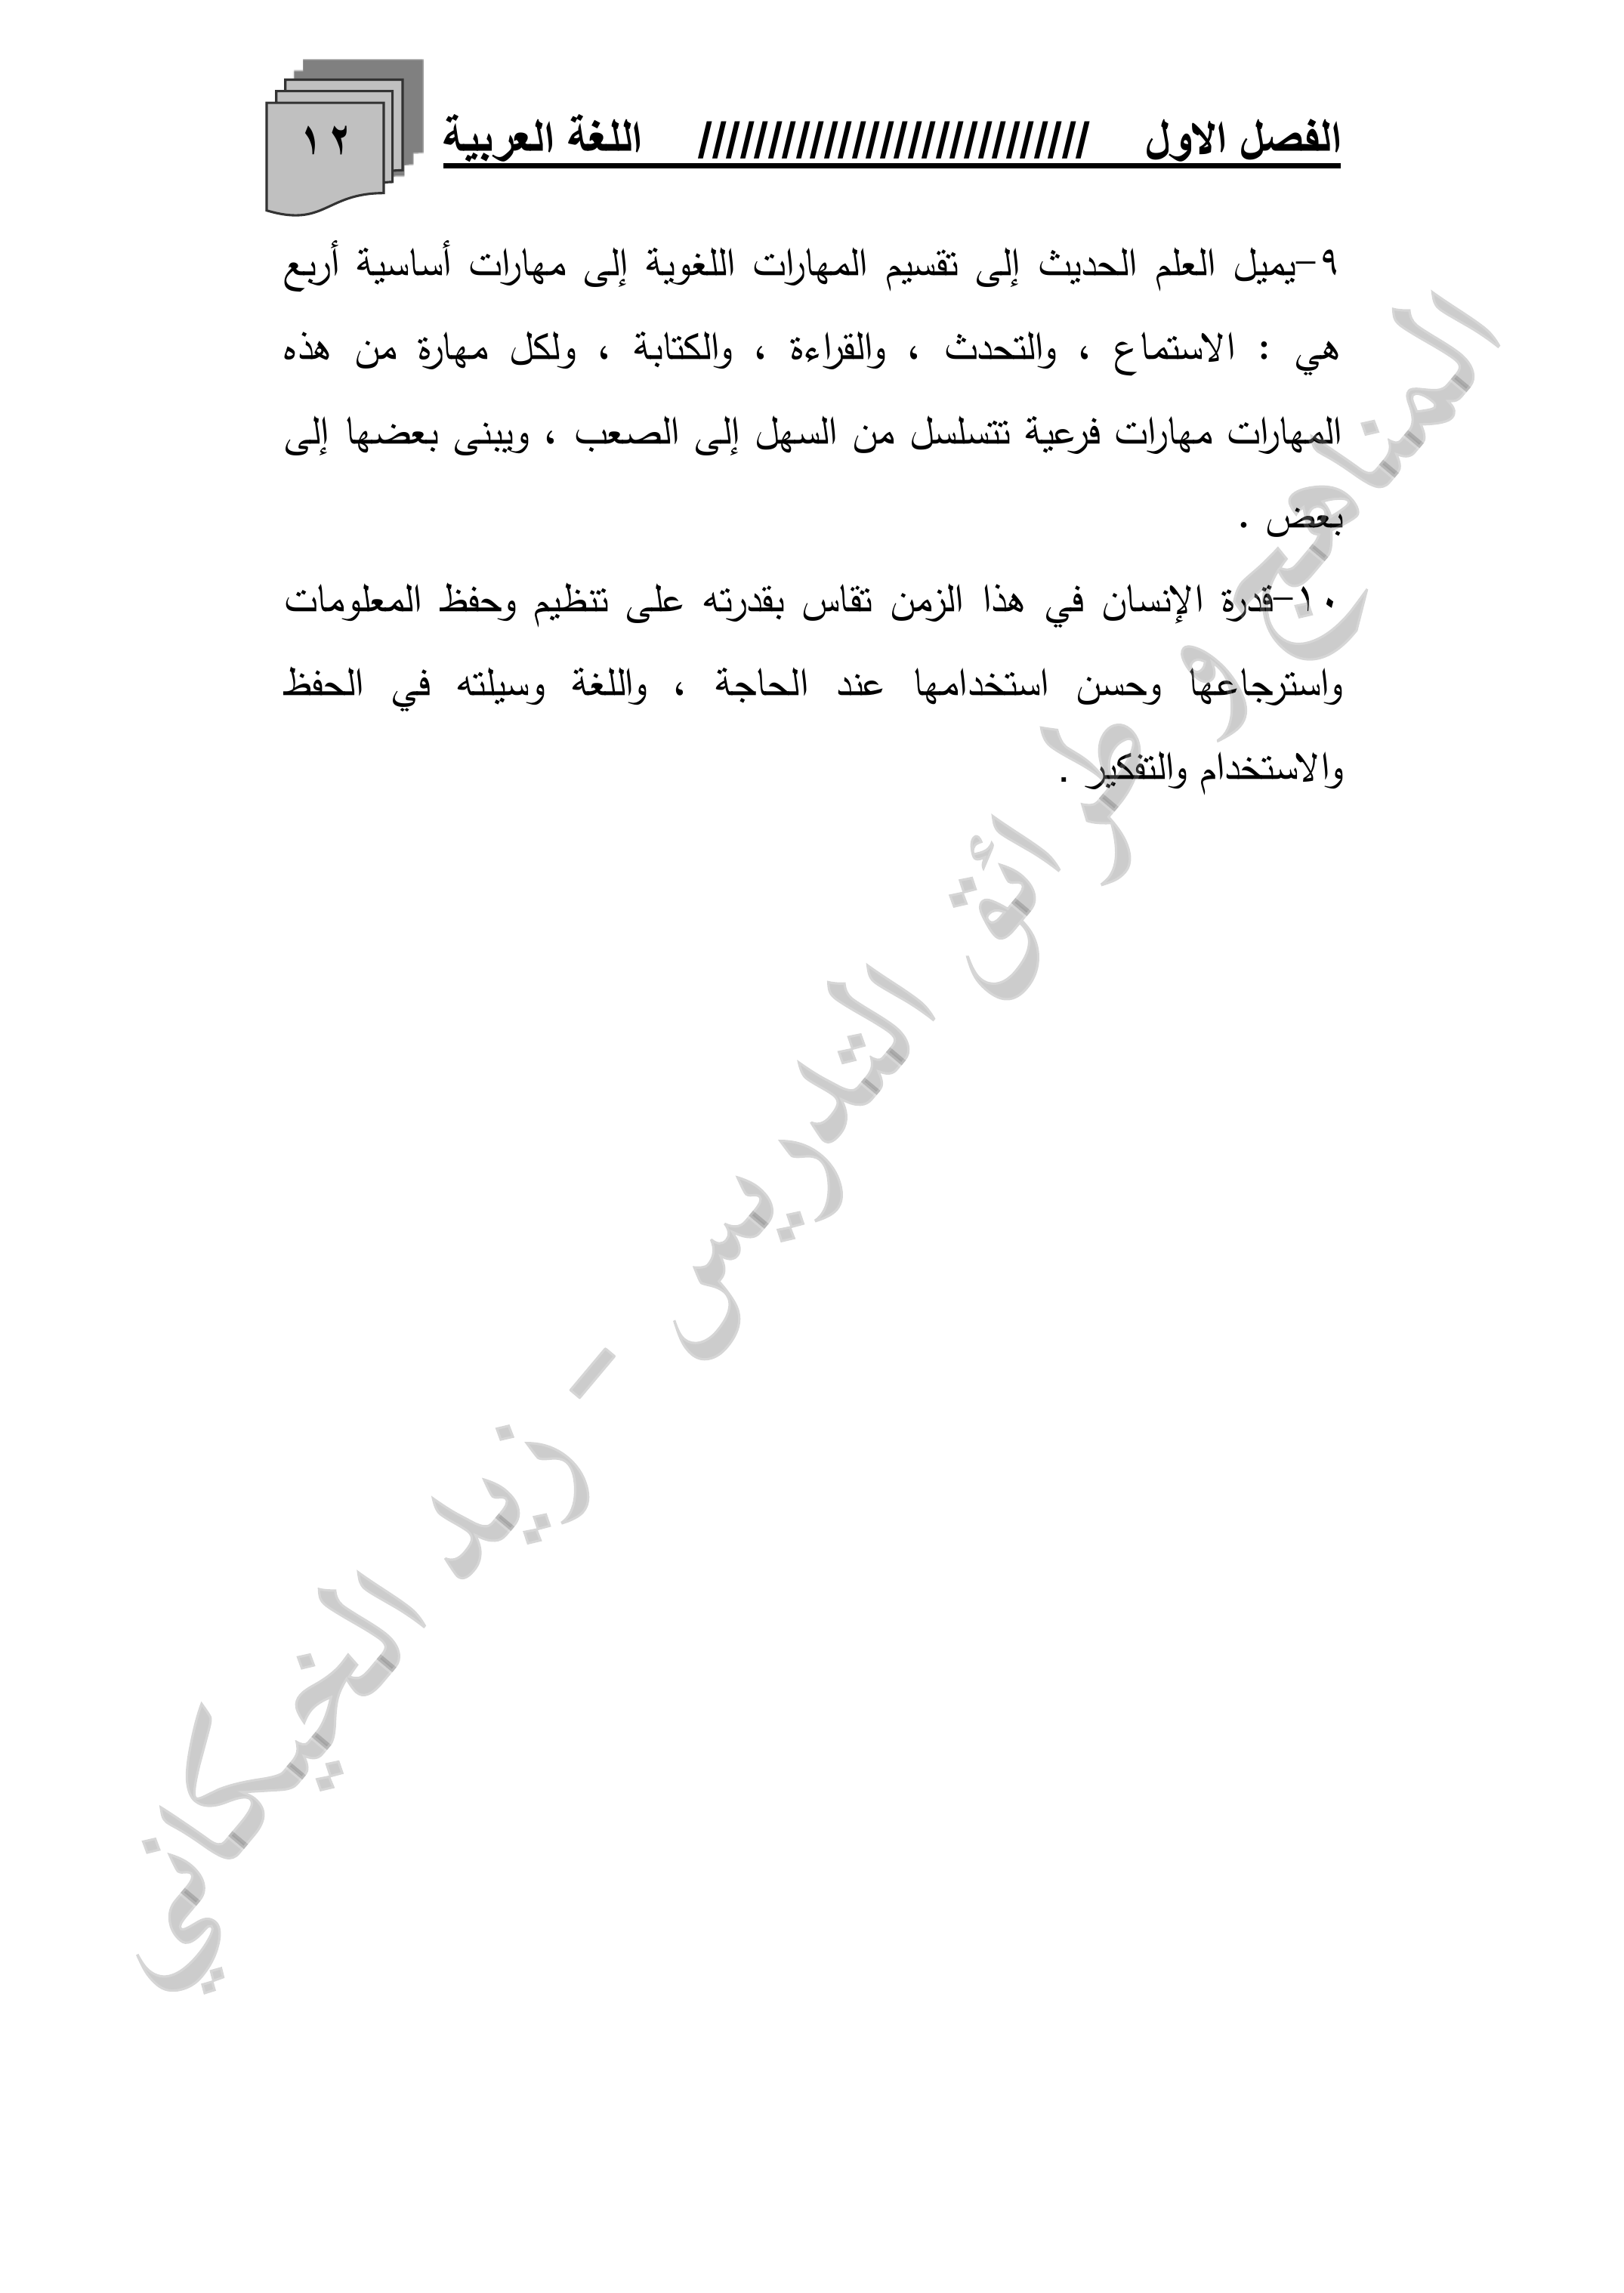 الفصل الاول //////////////////////////// اللغة العربية
١٢
٩-يميل العلم الحديث إلى تقسيم المهارات اللغوية إلى مهارات أساسية أربع
هي : الاستماع ، والتحدث ، والقراءة ، والكتابة ، ولكل مهارة من هذه
المهارات مهارات فرعية تتسلسل من السهل إلى الصعب ، ويبنى بعضها إلى
بعض .
١٠-قدرة الإنسان في هذا الزمن تقاس بقدرته على تنظيم وحفظ المعلومات
واسترجاعها وحسن استخدامها عند الحاجة ، واللغة وسيلته في الحفظ
والاستخدام والتفكير .
المناهج و طرائق التدريس - زيد الخيكاني